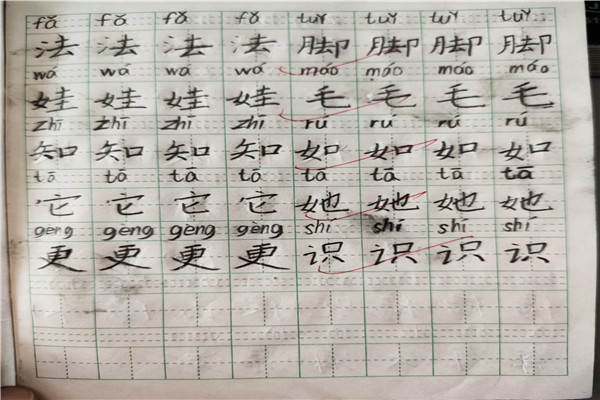 fǎ fǎ fǎ fǎ tuǐ tuǐ tuǐ tuǐ
法 法 法 法 脚 脚 脚 脚
wá wá wá wá máo máo máo máo
娃 娃 娃 娃 毛 毛 毛 毛
zhī zhī zhī zhī rú rú rú rú
知 知 知 知 如 如 如 如
tā tā tā tā tā tā tā tā
它 它 它 它 她 她 她 她
gèng gèng gèng gèng shí shí shí shí
更 更 更 更 识 识 识 识